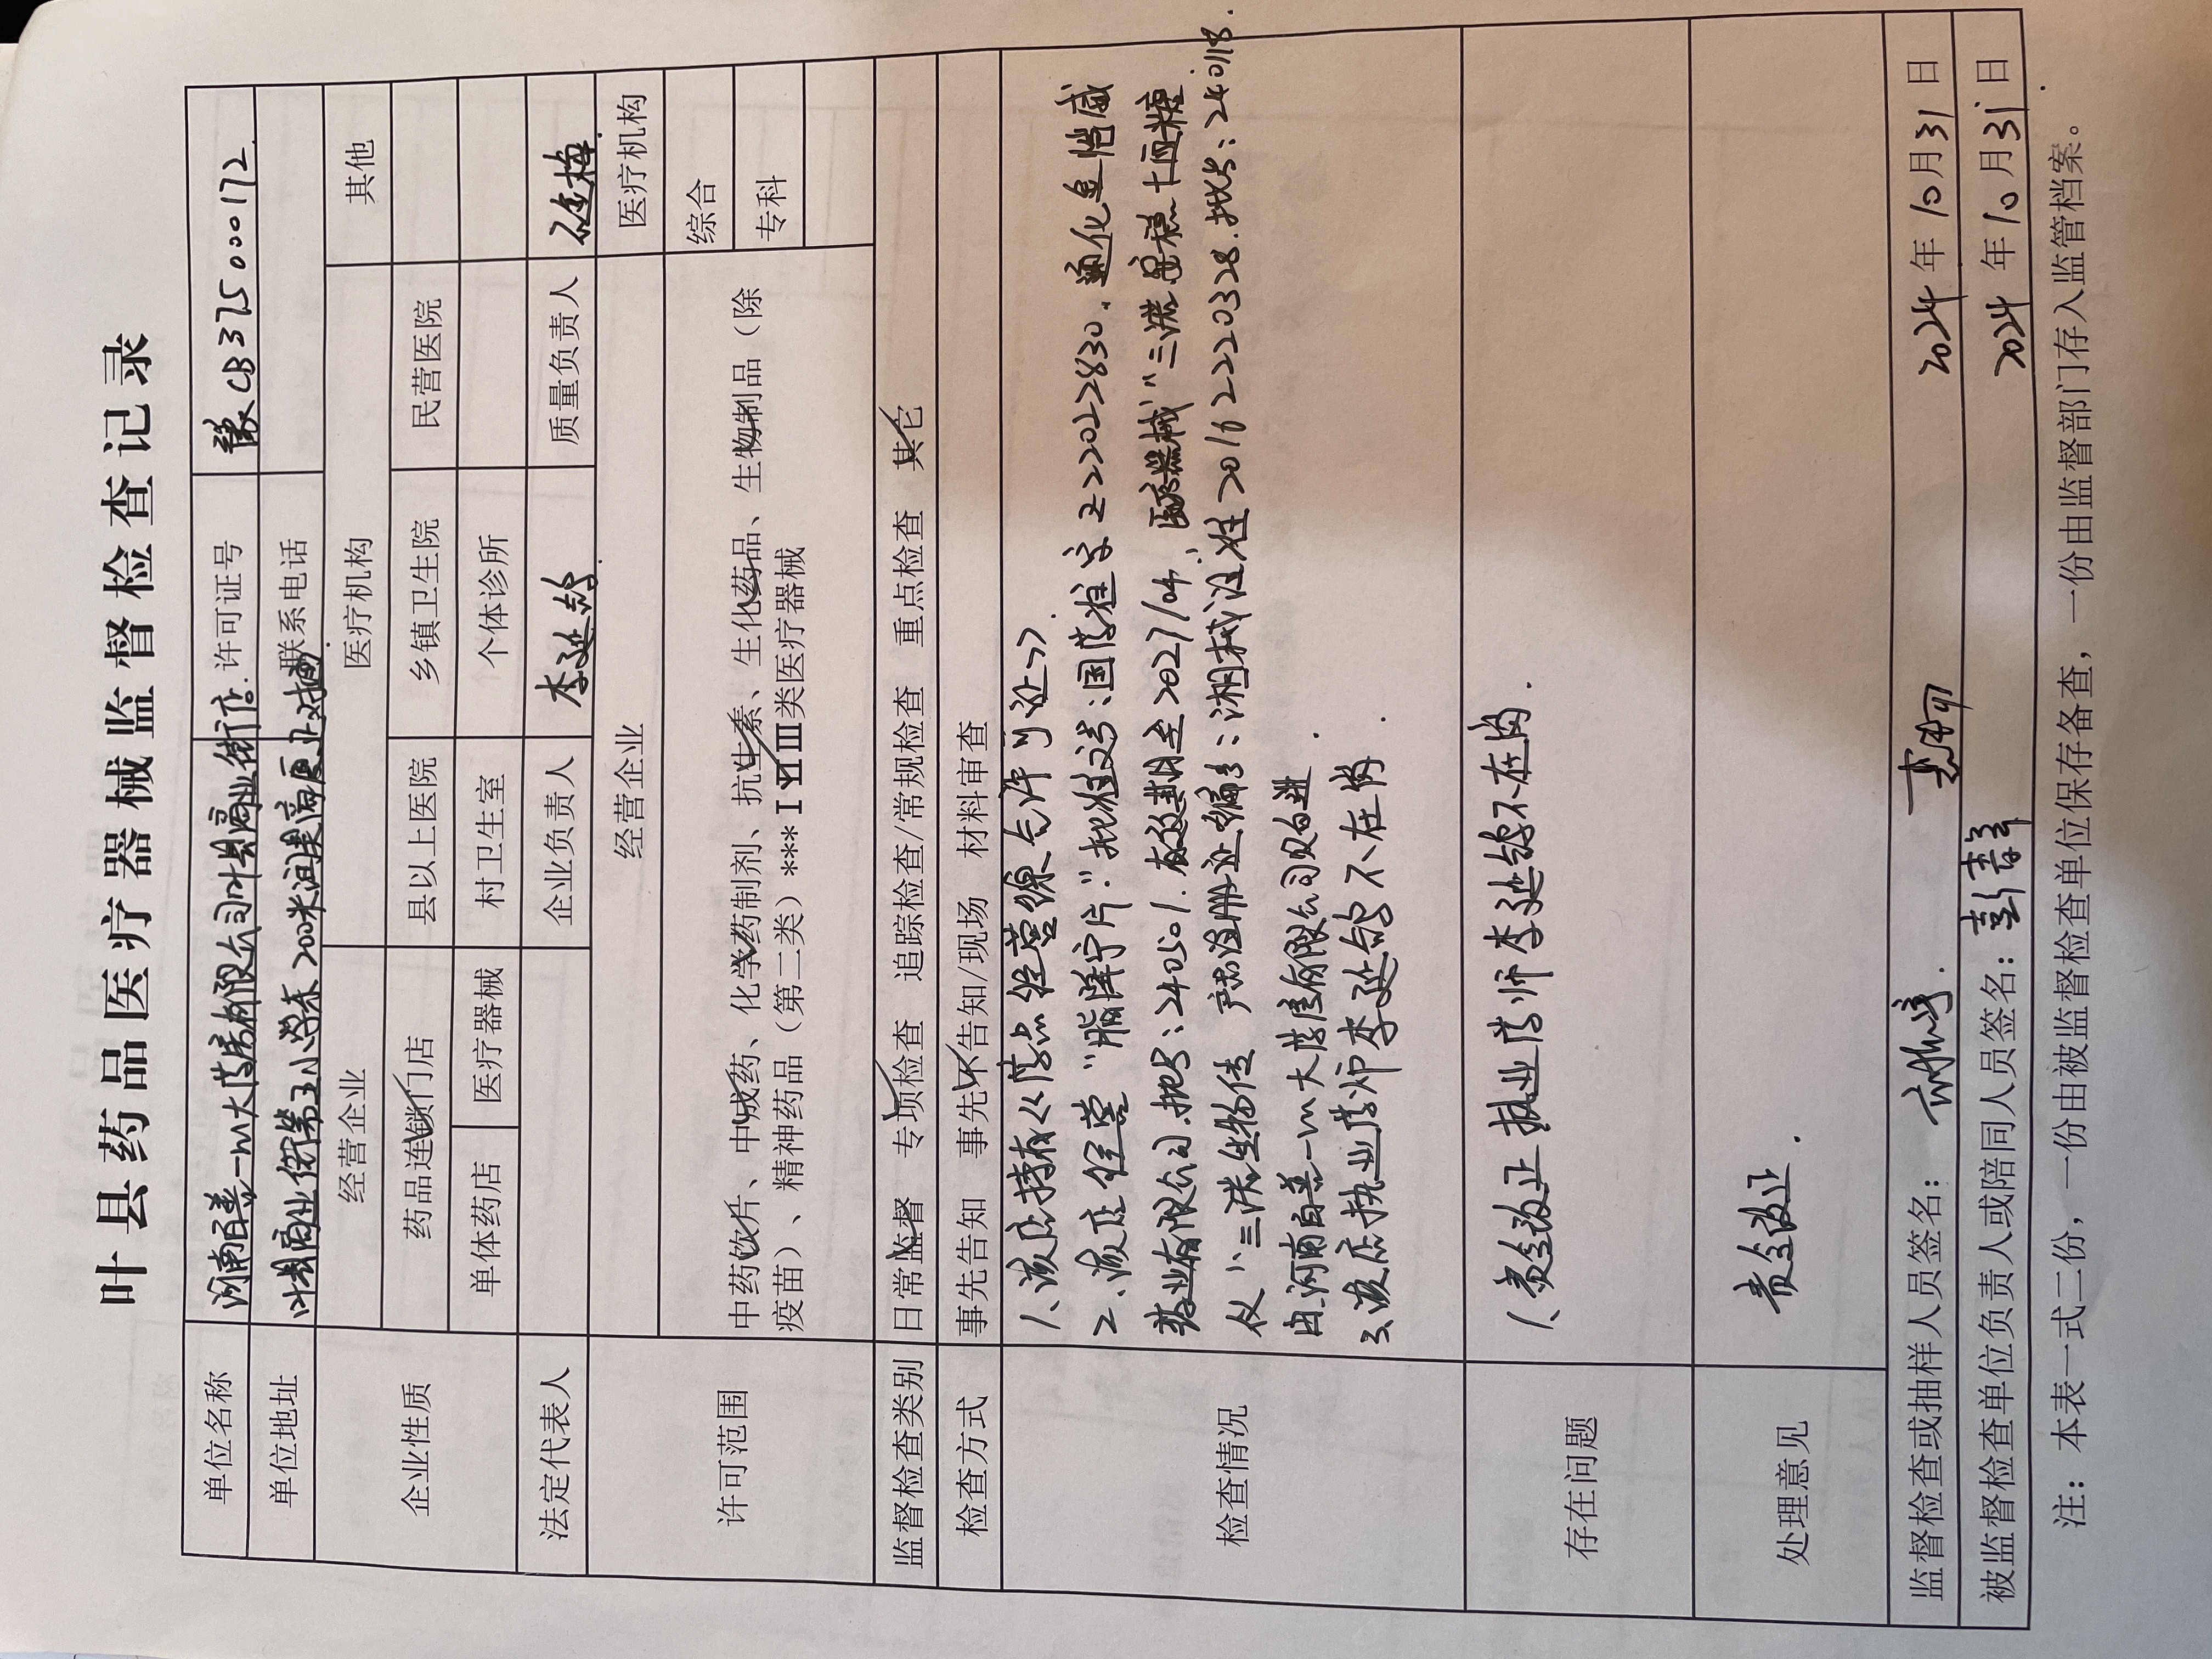 叶县药品医疗器械监督检查记录
单位名称 河南百善一加大药房有限公司叶县商业街店. 许可证号 豫CB375000172
单位地址 叶县商业街第五小学东200米润昊商厦 联系电话
企业性质 经营企业 医疗机构 其他
药品连锁门店 县以上医院 乡镇卫生院 民营医院
单体药店 医疗器械 村卫生室 个体诊所
法定代表人 企业负责人 李延鸽 质量负责人
许可范围 经营企业 医疗机构
综合
专科
中药饮片、中成药、化学药制剂、抗生素、生化药品、生物制品（除
疫苗）、精神药品（第二类）***Ⅰ Ⅱ Ⅲ类医疗器械
监督检查类别 日常监督 专项检查 追踪检查/常规检查 重点检查 其它
检查方式 事先告知 事先不告知/现场 材料审查
检查情况
1、该店持有《药品经营许可证》.
2、该店经营“脂降宁片”批准文号:国药准字Z22022830.通化金恺威
药业有限公司.批号:240501.有效期至2027/04. 医疗器械“三诺安稳+血糖
仪”三诺生物传 产品注册证编号:湘械注准20162220328.批号:240118.
由河南百善一加大药房有限公司购进.
3、该店执业药师李延鸽不在岗.
存在问题
1、责令改正执业药师李延鸽不在岗.
处理意见
责令改正.
监督检查或抽样人员签名: 2024年10月31日
被监督检查单位负责人或陪同人员签名: 2024年10月31日
注: 本表一式二份，一份由被监督检查单位保存备查，一份由监督部门存入监管档案。